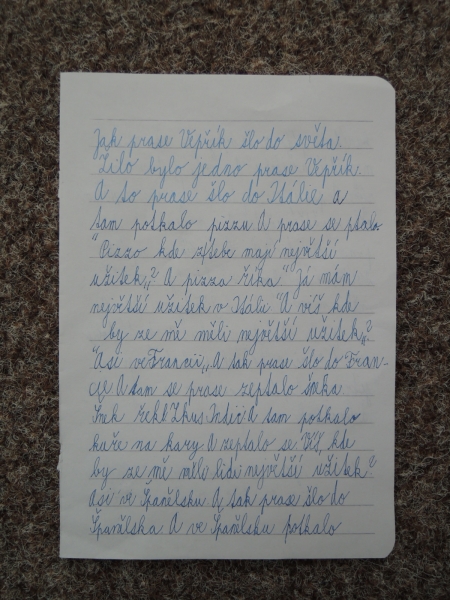 Jak prase Vepřík šlo do světa.
Žilo bylo jedno prase Vepřík.
A to prase šlo do Itálie a
tam potkalo pizzu A prase se ptalo
"Pizzo kde z tebe mají největší
užitek„? A pizza říka " Já mám
největší užitek v Itálii "A víš kde
by ze mě měli největší užitek„?
"Asi ve Francii„ A tak prase šlo do Fran-
cije A tam se prase zeptalo šneka
Šnek řekl Zkus Indii A tam potkalo
kuře na kary A zeptalo se Víš, kde
by ze mě měli lidi největší užitek?
Asi ve Španělsku. A tak prase šlo do
Španělska. A ve Španělsku potkalo